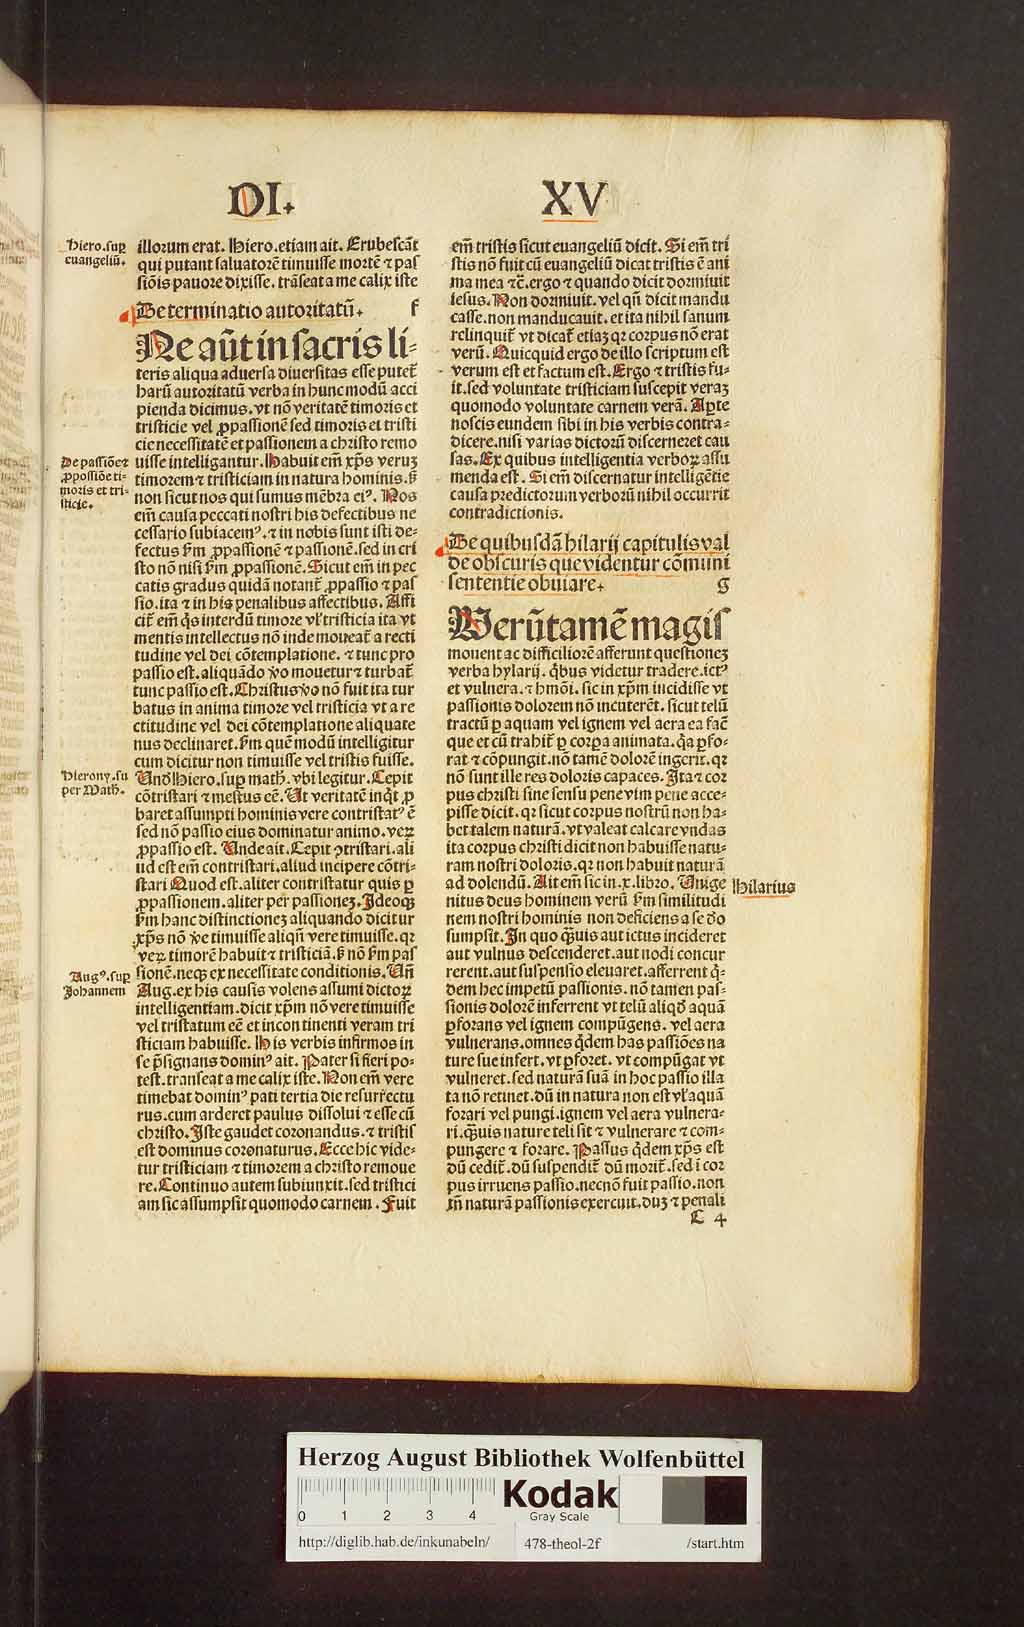 DI.
XV
Hiero.sup̱
euangeliū.
illorum erat. Hiero.etiam ait. Erubescāt
qui putant saluatorē timuisse mortē ⁊ pas
siōis pauore dixisse. trāseat a me calix iste
Determinatio autoritatū. f
Ne aūt in sacris li⸗
teris aliqua aduersa diuersitas esse putet᷑
harū autoritatū verba in hunc modū acci
pienda dicimus. vt nō veritatē timoris et
tristicie vel ꝓpassionē sed timoris et tristi
cie necessitatē et passionem a christo remo
De passiōe ⁊
ꝓpossiōe ti⸗
moris et tri⸗
sticie.
uisse intelligantur. Habuit em̄ xp̄s veruꝫ
timorem ⁊ tristiciam in natura hominis. ẜꝫ
non sicut nos qui sumus mēbra eiꝰ. Nos
em̄ causa peccati nostri his defectibus ne
cessario subiacemꝰ. ⁊ in nobis sunt isti de⸗
fectus ẜm ꝓpassionē ⁊ passionē. sed in cri
sto nō nisi ẜm ꝓpassionē. Sicut em̄ in pec
catis gradus quidā notant᷑ ꝓpassio ⁊ pas
sio. ita ⁊ in his penalibus affectibus. Affi
cit᷑ em̄ q̇s interdū timore vl' tristicia ita vt
mentis intellectus nō inde moueat᷑ a recti
tudine vel dei cōtemplatione. ⁊ tunc pro
passio est. aliquādo v̊o mouetur ⁊ turbat᷑
tunc passio est. Christus v̊o nō fuit ita tur
batus in anima timore vel tristicia vt a re
ctitudine vel dei cōtemplatione aliquate
nus declinaret. ẜm quē modū intelligitur
cum dicitur non timuisse vel tristis fuisse.
Hierony. su
per Math.
Vnd̄ Hiero. sup̱ math. vbi legitur. Cepit
cōtristari ⁊ mestus eē. Vt veritatē inq̇t ꝓ
baret assumpti hominis vere contristatꝰ ē
sed nō passio eius dominatur animo. veꝝ
ꝓpassio est. Vnde ait. Cepit ꝯtristari. ali
ud est em̄ contristari. aliud incipere cōtri⸗
stari Quod est. aliter contristatur quis ꝑ
ꝓpassionem. aliter per passioneꝫ. Ideoqꝫ
ẜm hanc distinctioneꝫ aliquando dicitur
xp̄s nō v̊e timuisse aliqn̄ vere timuisse. qꝛ
veꝝ timorē habuit ⁊ tristiciā. ẜꝫ nō ẜm pas
Augꝰ. sup̱
Johannem
sionē. neqꝫ ex necessitate conditionis. Vn̄
Aug. ex his causis volens assumi dictoꝝ
intelligentiam. dicit xp̄m nō vere timuisse
vel tristatum eē et incontinenti veram tri
sticiam habuisse. His verbis infirmos in
se p̄signans dominꝰ ait. Pater si fieri po⸗
test. transeat a me calix iste. Non em̄ vere
timebat dominꝰ pati tertia die resurrectu
rus. cum arderet paulus dissolui ⁊ esse cū
christo. Iste gaudet coronandus. ⁊ tristis
est dominus coronaturus. Ecce hic vide⸗
tur tristiciam ⁊ timorem a christo remoue
re. Continuo autem subiunxit. sed tristici
am sic assumpsit quomodo carnem. Fuit
em̄ tristis sicut euangeliū dicit. Si em̄ tri
stis nō fuit cū euangeliū dicat tristis ē ani
ma mea ⁊c̄. ergo ⁊ quando dicit dormiuit
iesus. Non dormiuit. vel qn̄ dicit mandu
casse. non manducauit. et ita nihil sanum
relinquit᷑ vt dicat᷑ etiaꝫ qꝛ corpus nō erat
verū. Quicquid ergo de illo scriptum est
verum est et factum est. Ergo ⁊ tristis fu⸗
it. sed voluntate tristiciam suscepit veraꝫ
quomodo voluntate carnem verā. Aꝑte
noscis eundem sibi in his verbis contra⸗
dicere. nisi varias dictorū discerneret cau
sas. Ex quibus intelligentia verboꝝ assu
menda est. Si em̄ discernatur intelligētie
causa predictorum verborū nihil occurrit
contradictionis.
De quibusdā hilarij capitulis val
de obscuris que videntur cōmuni
sententie obuiare. g
Verūtamē magis
mouent ac difficiliorē afferunt questioneꝫ
verba hylarij. q̇bus videtur tradere. ictꝰ
et vulnera. ⁊ hmōi. sic in xp̄m incidisse vt
passionis dolorem nō incuterēt. sicut telū
tractū ꝑ aquam vel ignem vel aera ea faē
que et cū trahit᷑ ꝑ corꝑa animata. q̇a ꝑfo⸗
rat ⁊ cōpungit. nō tamē dolorē ingerit. qꝛ
nō sunt ille res doloris capaces. Ita ⁊ cor
pus christi sine sensu pene vim pene acce⸗
pisse dicit. qꝛ sicut corpus nostrū non ha⸗
bet talem naturā. vt valeat calcare vndas
ita corpus christi dicit non habuisse natu⸗
ram nostri doloris. qꝛ non habuit naturā
ad dolendū. Ait em̄ sic in .x. libro. Vnige
Hilarius
nitus deus hominem verū ẜm similitudi
nem nostri hominis non deficiens a se d̄o
sumpsit. In quo q̄uis aut ictus incideret
aut vulnus descenderet. aut nodi concur
rerent. aut suspensio eleuaret. afferrent q̇⸗
dem hec impetū passionis. nō tamen pas⸗
sionis dolorē inferrent vt telū aliqd̓ aquā
ꝑforans vel ignem compūgens. vel aera
vulnerans. omnes q̇dem has passiōes na
ture sue infert. vt ꝑforet. vt compūgat vt
vulneret. sed naturā suā in hoc passio illa
ta nō retinet. dū in natura non est vl' aquā
forari vel pungi. ignem vel aera vulnera⸗
ri. q̄uis nature teli sit ⁊ vulnerare ⁊ com⸗
pungere ⁊ forare. Passus q̇dem xp̄s est
dū cedit᷑. dū suspendit᷑ dū morit᷑. sed ī cor
pus irruens passio. necnō fuit passio. non
tn̄ naturā passionis exercuit. duꝫ ⁊ penali
C 4
Herzog August Bibliothek Wolfenbüttel
0 1 2 3 4
Kodak
Gray Scale
http://diglib.hab.de/inkunabeln/ 478-theol-2f /start.htm